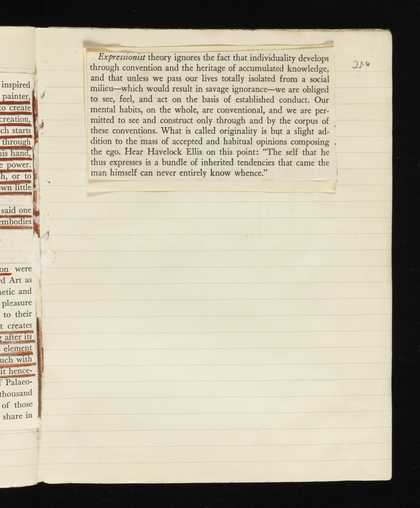 inspired
painter,
to create
creation,
ch starts
through
his hand,
e power.
h, or to
wn little
said one
embodies
on were
d Art as
netic and
pleasure
to their
t creates
after its
element
uch with
it hence-
Palaeo-
thousand
of those
share in
Expressionist theory ignores the fact that individuality develops
through convention and the heritage of accumulated knowledge,
and that unless we pass our lives totally isolated from a social
milieu—which would result in savage ignorance—we are obliged
to see, feel, and act on the basis of established conduct. Our
mental habits, on the whole, are conventional, and we are per-
mitted to see and construct only through and by the corpus of
these conventions. What is called originality is but a slight ad-
dition to the mass of accepted and habitual opinions composing
the ego. Hear Havelock Ellis on this point: "The self that he
thus expresses is a bundle of inherited tendencies that came the
man himself can never entirely know whence."